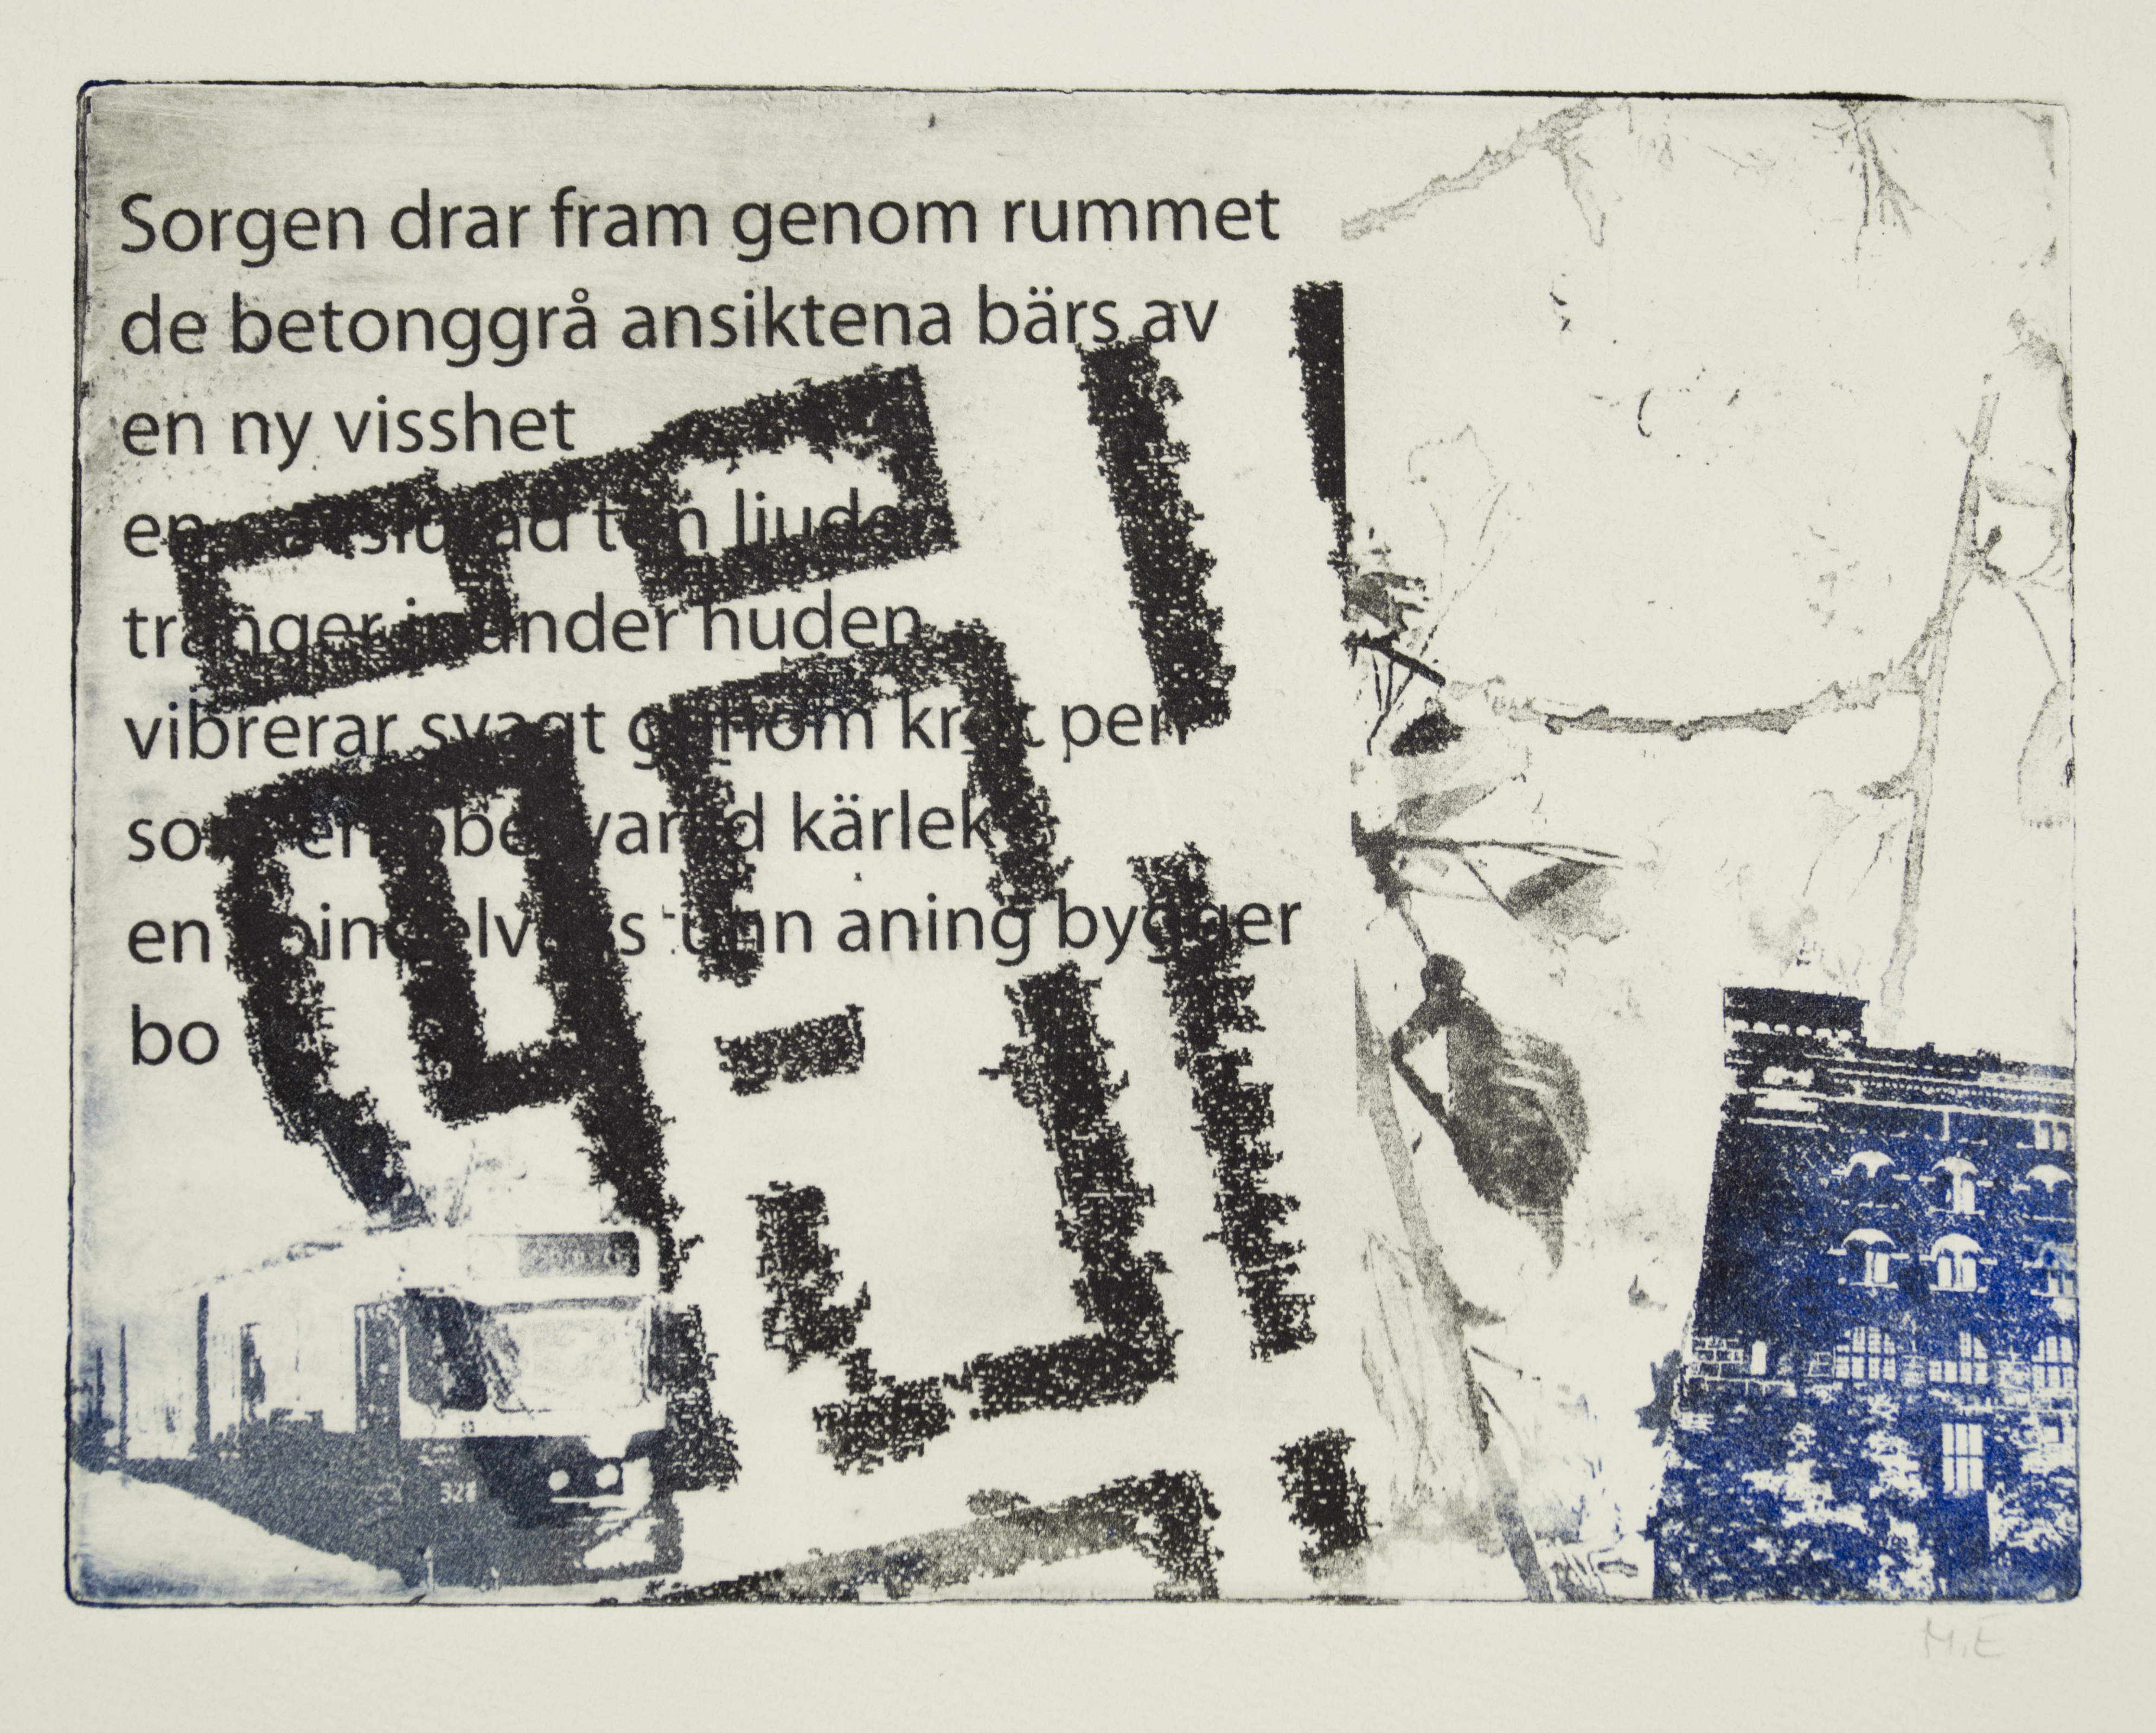 Sorgen drar fram genom rummet
de betonggrå ansiktena bärs av
en ny visshet
en ton ljuder
tränger in under huden
vibrerar svagt genom kroppen
som en obesvarad kärlek
en tunn aning bygger
bo
328
M.E